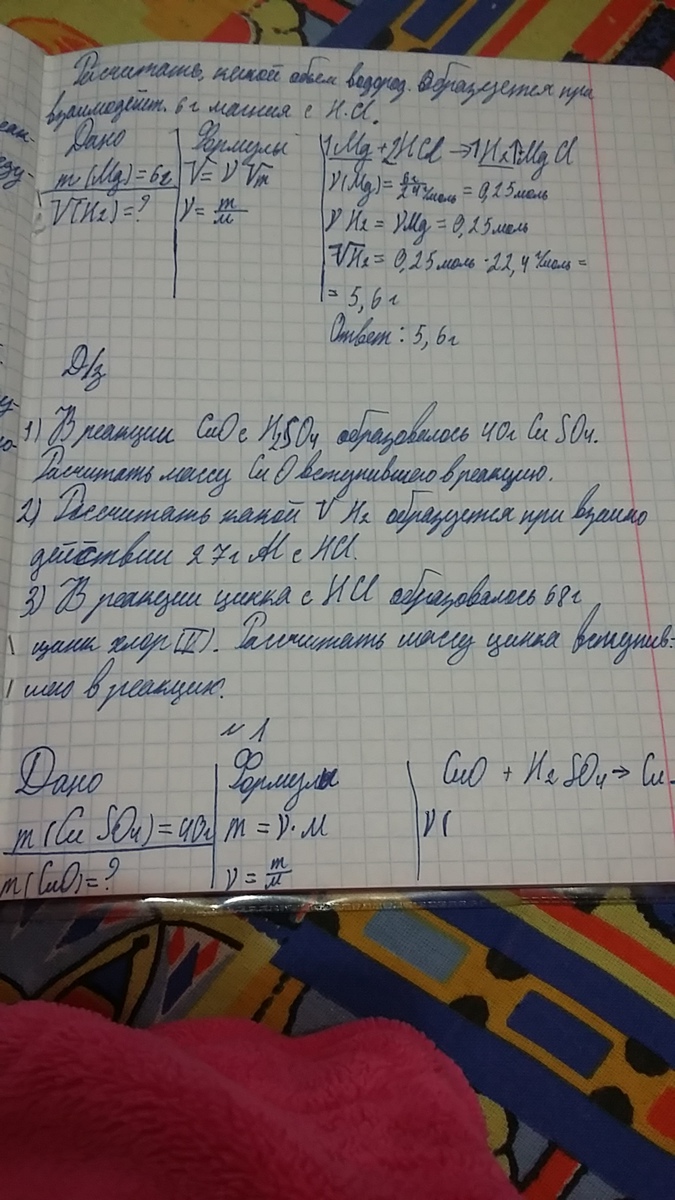 Расчитать, какой объем водород. образуется при
взаимодейт. 6 г магния с HCl.
Дано
m(Mg)=6г
V(H2)=?
Формулы
V=ν Vm
ν=m/M
1Mg+2HCl→1H2↑MgCl
ν(Mg)=6г/24г/моль=0,25моль
νH2=νMg=0,25моль
VH2=0,25моль·22,4г/моль=
=5,6г
Ответ: 5,6г
Д/з
1) В реакции CuO с H2SO4 образовалось 40г CuSO4.
Расчитать массу CuO вступившего в реакцию.
2) Рассчитать какой V H2 образуется при взаимо
действии 27г Al с HCl.
3) В реакции цинка с HCl образовалось 68г
цинк хлор(II). Рассчитать массу цинка вступив-
шего в реакцию.
№1
Дано
m(CuSO4)=40г
m(CuO)=?
Формулы
m=ν·M
ν=m/M
CuO+H2SO4→Cu
ν(